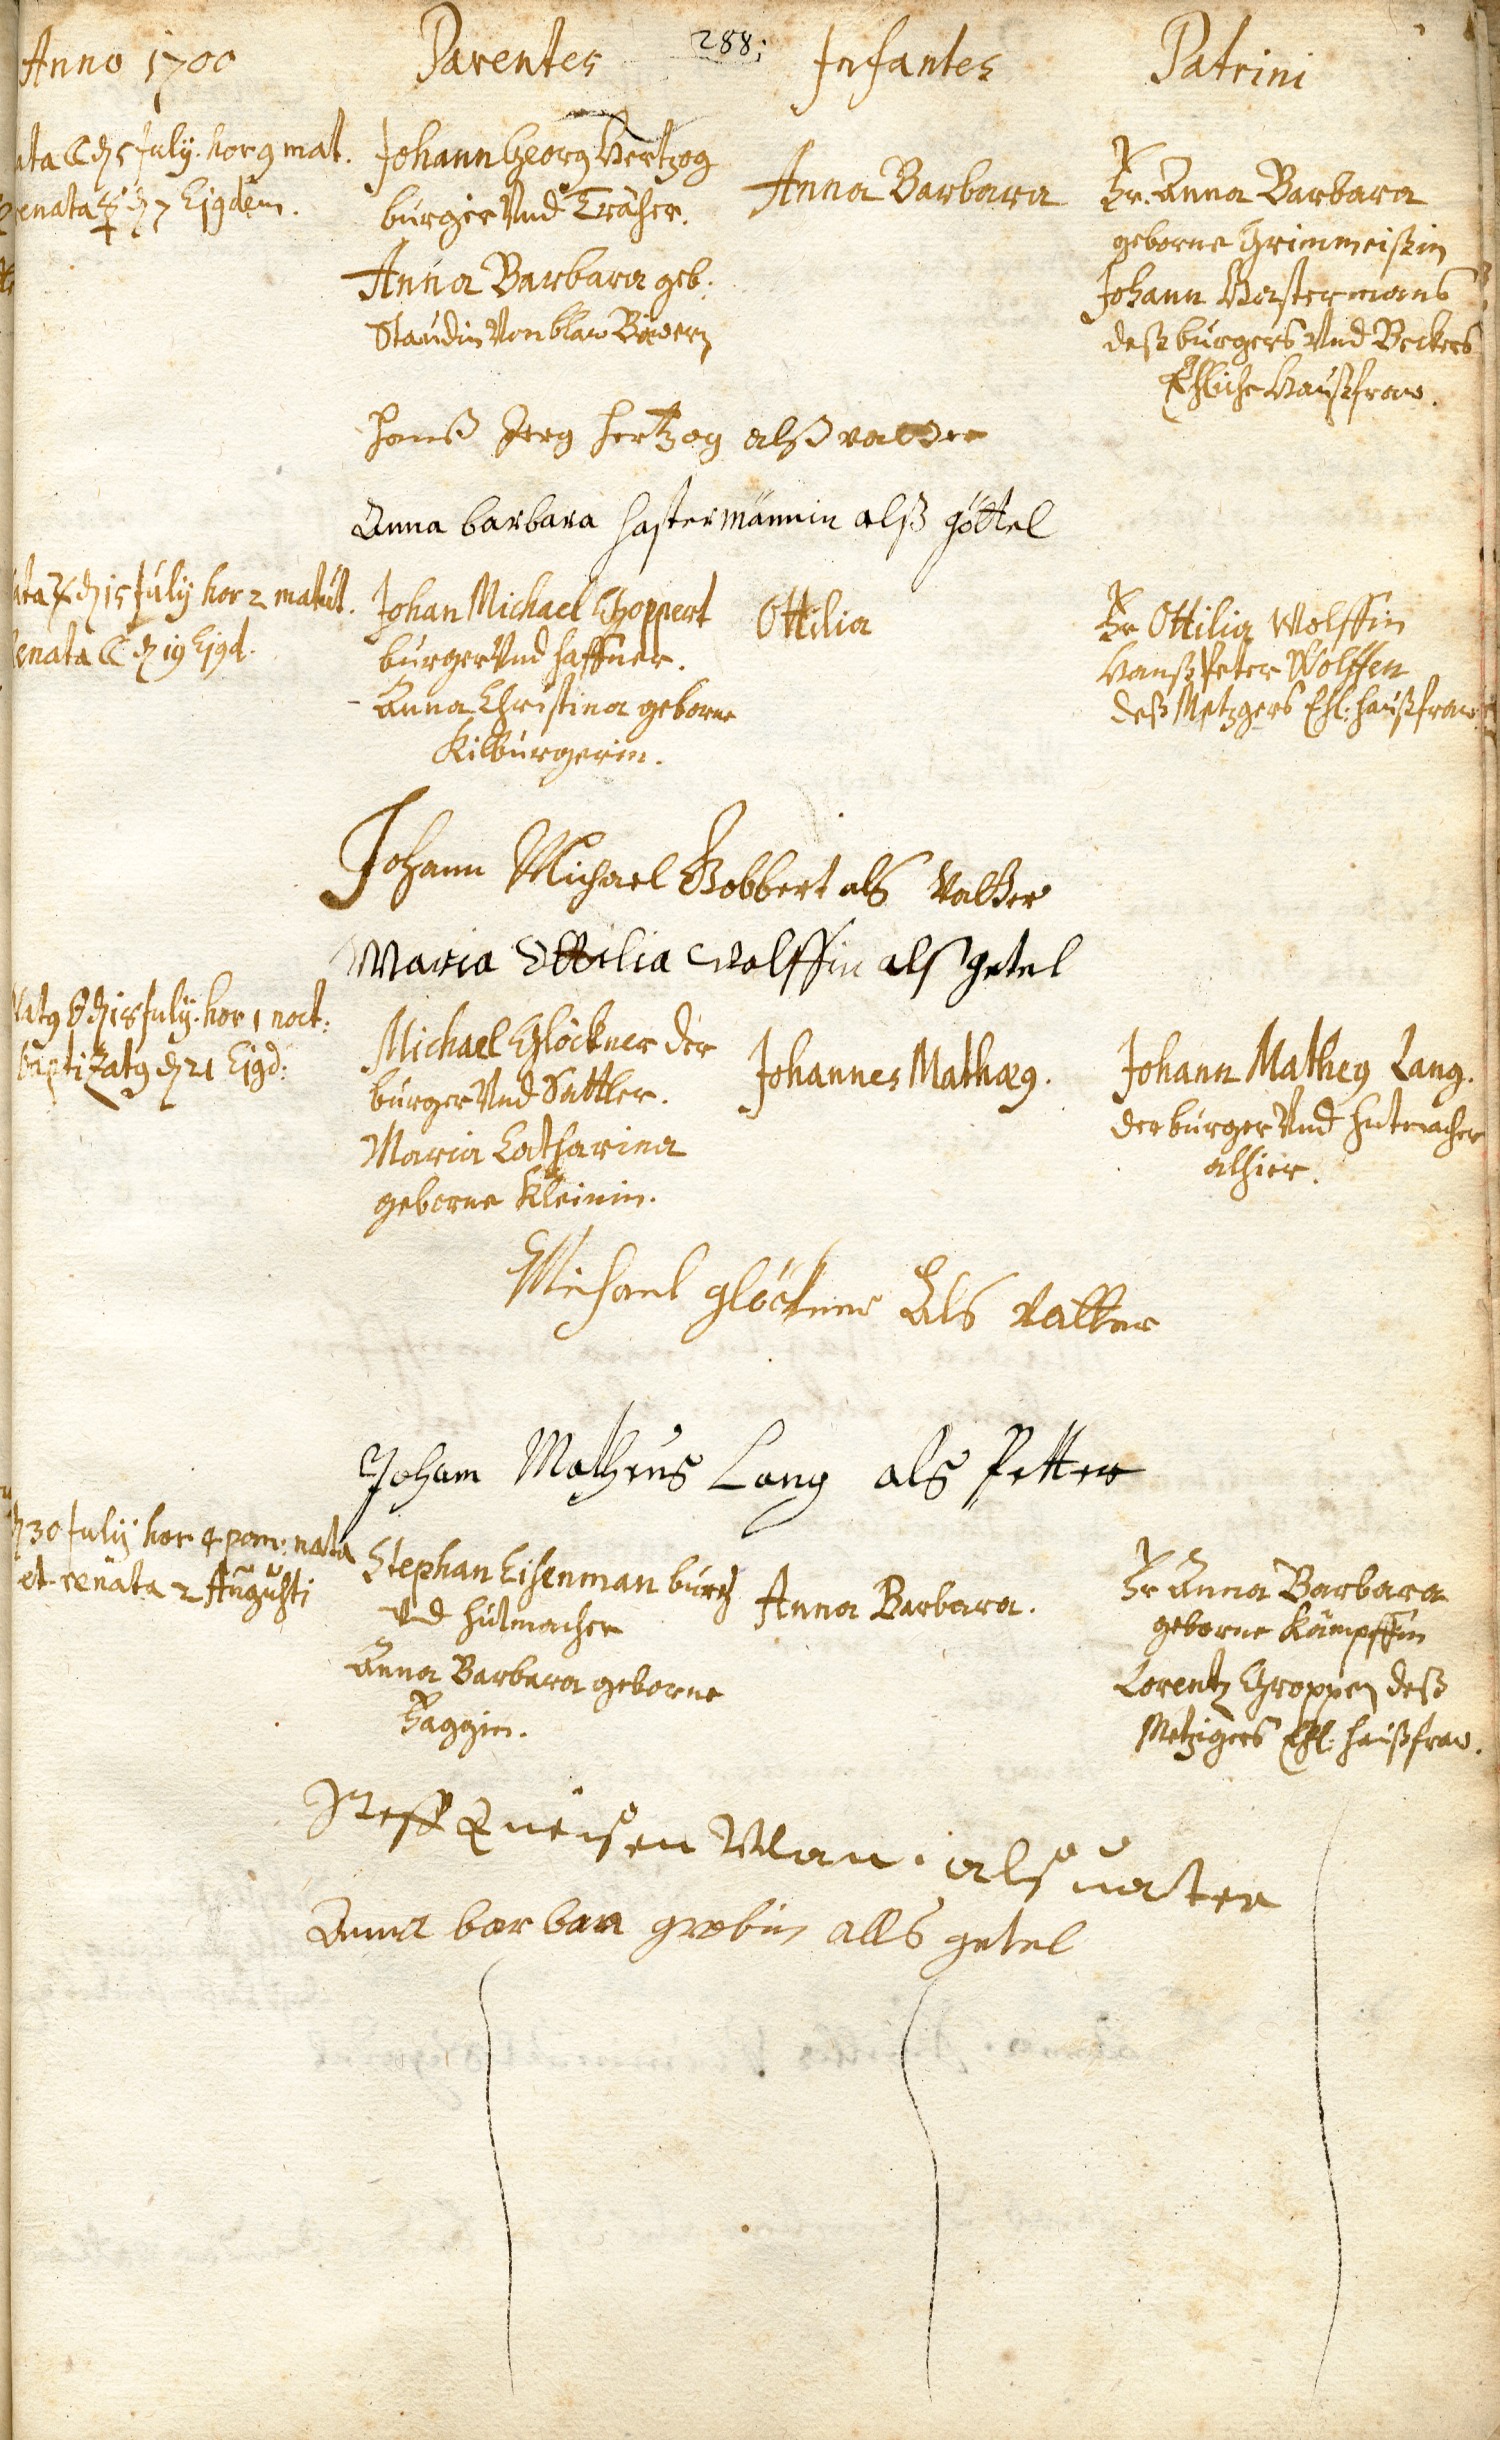 288.
Anno 1700 Parentes Infantes Patrini
ata ☾ 5 July. hor 9 mat.
renata ☿ 7 Ejgdem.
Johann Georg Hertzog
burger Vnd Träher.
Anna Barbara geb.
Staudin Von
Anna Barbara
Fr. Anna Barbara
geborne Grimmeisin
Johann Hastermans
deß burgers Vnd Beckers
Ehliche Haußfraw.
Hanß Jerg Hertzog alß vatter
Anna barbara Hastermännin alß göttel
ata ♃ 15 July hor 2 matut.
enata ☾ 19 Ejgd.
Johan Michael Goppert
burger Vnd Haffner.
Anna Christina geborne
Kilburgerin.
Ottilia
Fr Ottilia Wolffin
Hanß Peter Wolffen
deß Metzgers Ehl: haußfraw
Johann Michael Gobbert als Vatter
Maria Ottilia Wolffin alß getel
Natg 18 July. hor 1 noct:
baptizatg 21 Ejgd:
Michael Glöckner der
burger Vnd Sattler.
Maria Catharina
geborne Kleinin.
Johannes Mathæg.
Johann Matheg Lang.
der burger Vnd Hutmacher
alhier.
Michael glöckner Als Vatter
Johann Matheus Lang als Petter
30 July hor 4 pom: nata
et renata 2 Augusti
Stephan Eisenman burg
Vnd Hutmacher
Anna Barbara geborne
Haggin.
Anna Barbara.
Fr Anna Barbara
geborne Kämpffin
Lorentz Groppen deß
Metzigers Ehl: haußfraw.
Man. alß uater
Anna barbara grobin alls getel